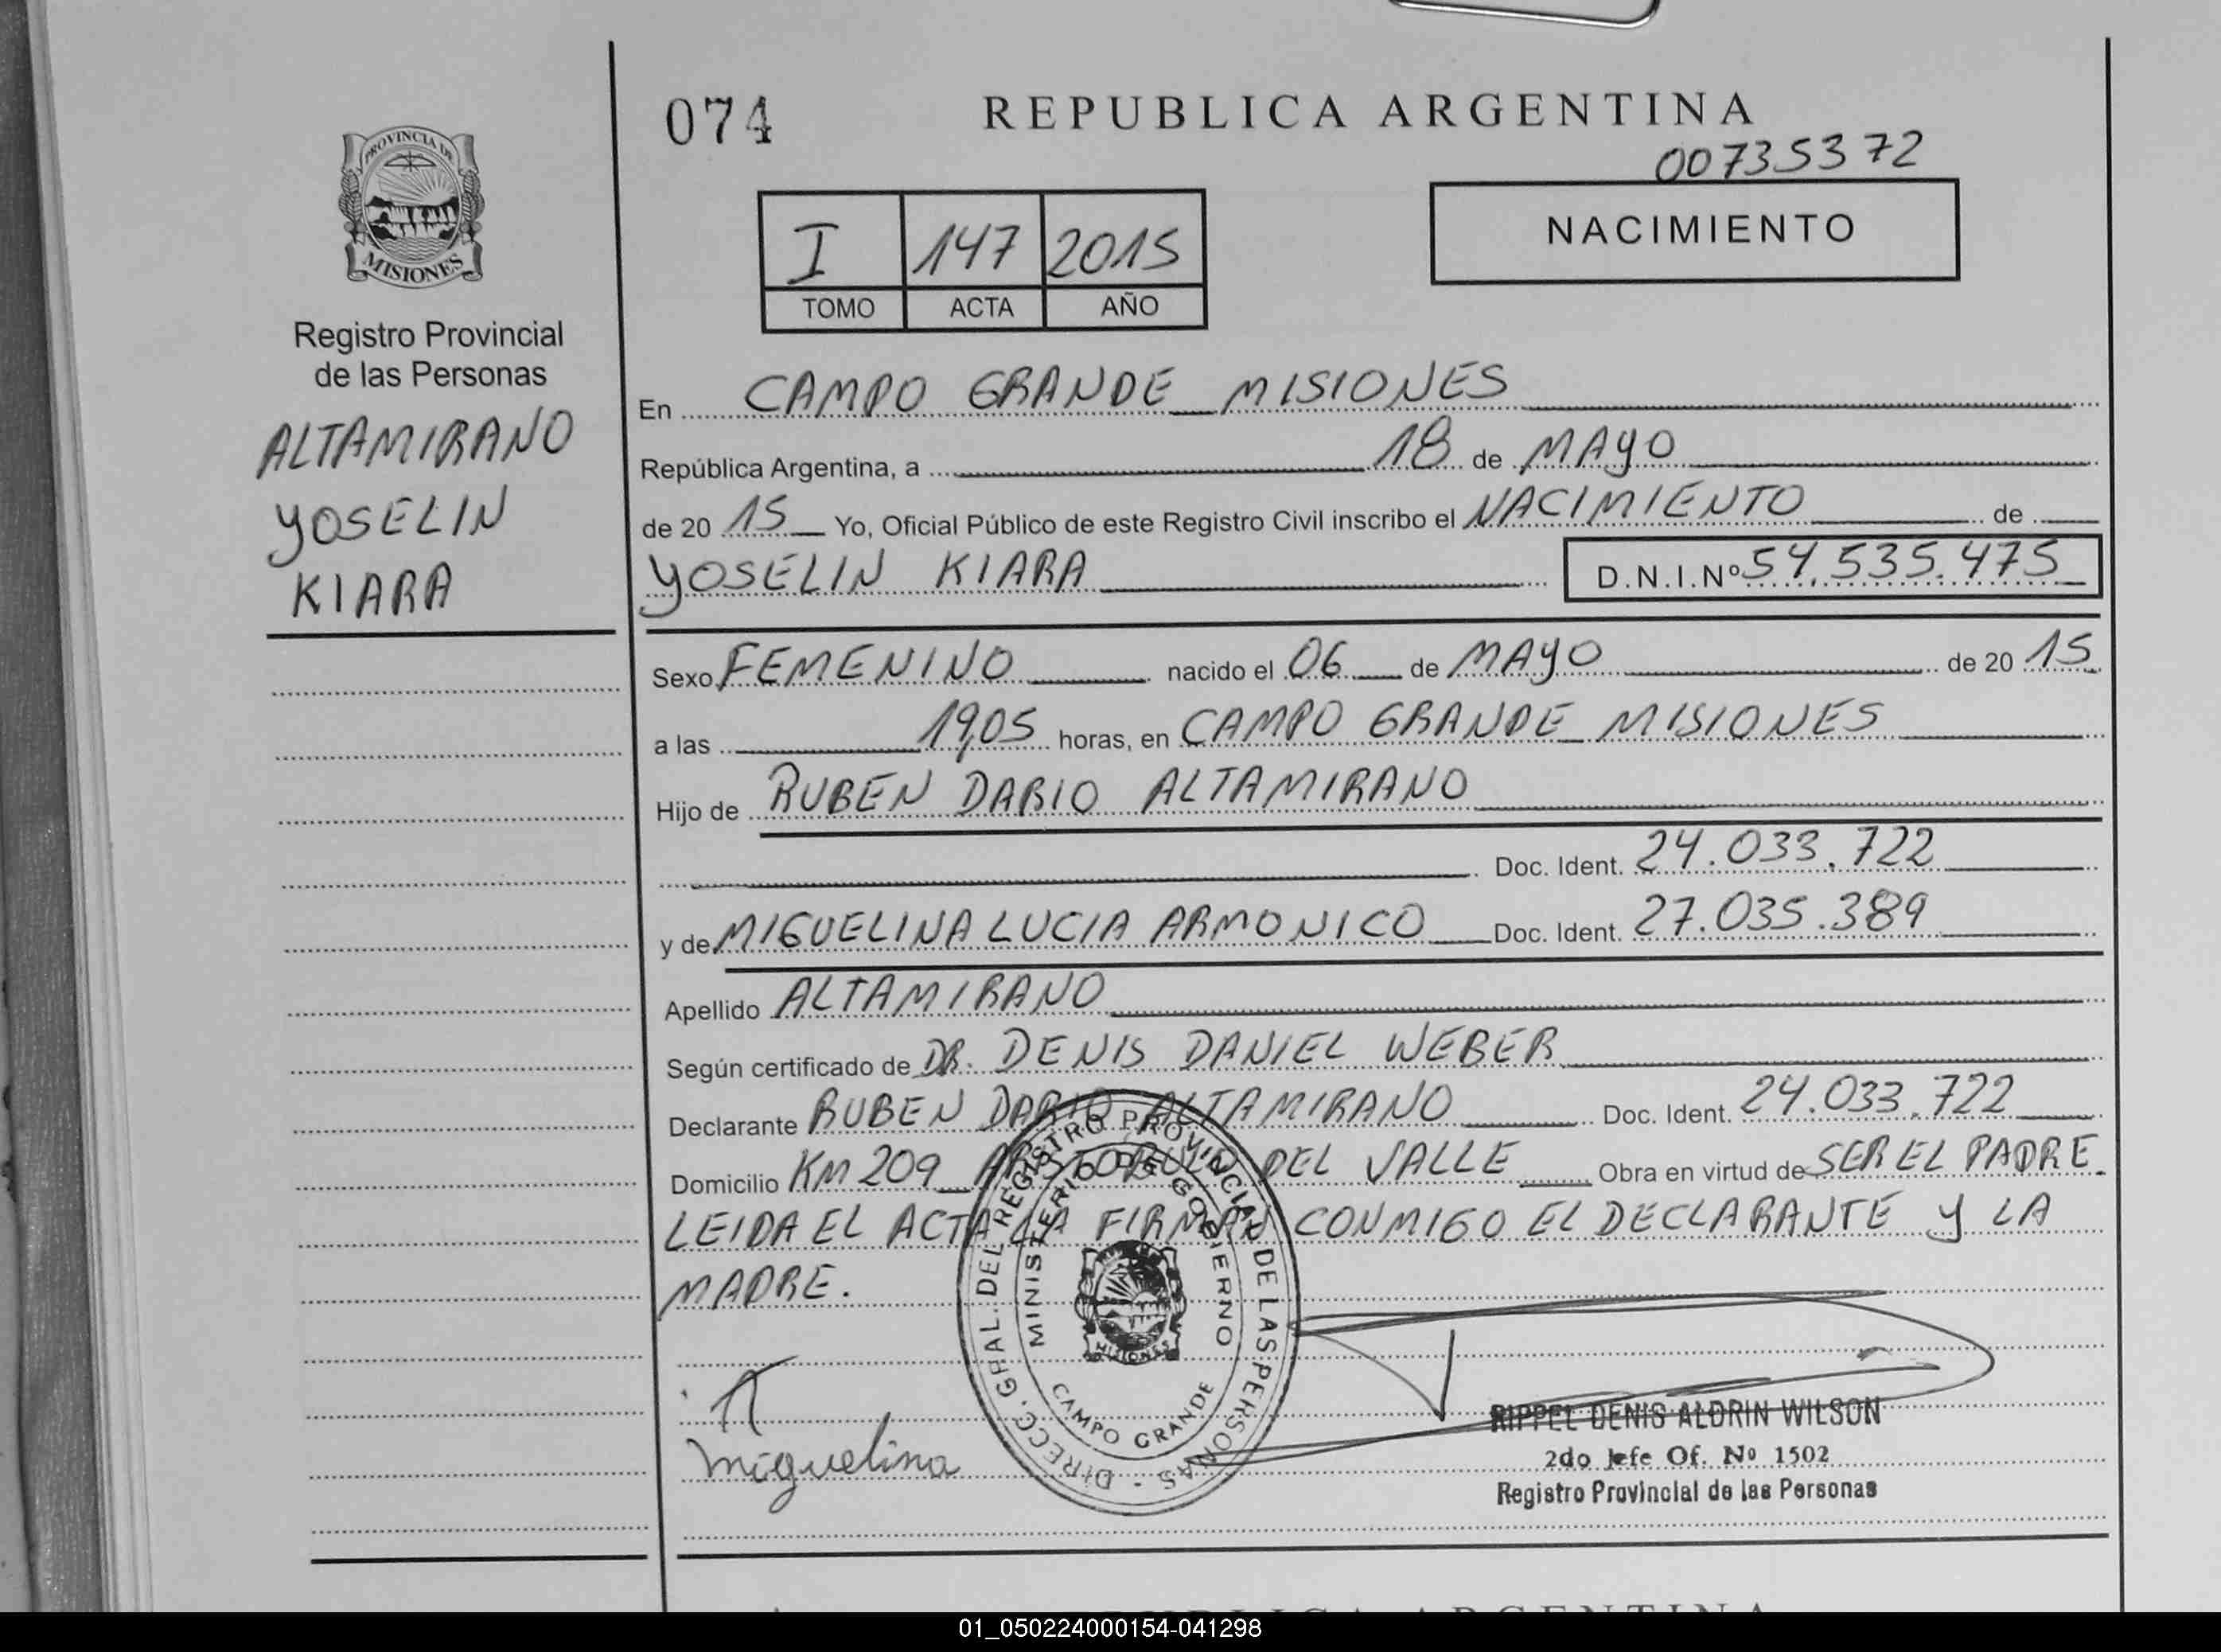 074
REPUBLICA ARGENTINA
00735372
PROVINCIA DE
MISIONES
I 147 2015
TOMO ACTA AÑO
NACIMIENTO
Registro Provincial
de las Personas
ALTAMIRANO
YOSELIN
KIARA
En CAMPO GRANDE MISIONES
República Argentina, a 18 de MAYO
de 20 15 Yo, Oficial Público de este Registro Civil inscribo el NACIMIENTO de
YOSELIN KIARA D.N.I.Nº 54.535.475
Sexo FEMENINO nacido el 06 de MAYO de 20 15
a las 19,05 horas, en CAMPO GRANDE MISIONES
Hijo de RUBEN DARIO ALTAMIRANO
Doc. Ident. 24.033.722
y de MIGUELINA LUCIA ARMONICO Doc. Ident. 27.035.389
Apellido ALTAMIRANO
Según certificado de DR. DENIS DANIEL WEBER
Declarante RUBEN DARIO ALTAMIRANO Doc. Ident. 24.033.722
Domicilio KM 209 ARISTOBULO DEL VALLE Obra en virtud de SER EL PADRE
LEIDA EL ACTA LA FIRMAN CONMIGO EL DECLARANTE Y LA
MADRE.
DIRECC. GRAL. DEL REGISTRO PROVINCIAL DE LAS PERSONAS
MINISTERIO DE GOBIERNO
MISIONES
CAMPO GRANDE
Miguelina
RIPPEL DENIS ALDRIN WILSON
2do Jefe Of. Nº 1502
Registro Provincial de las Personas
01_050224000154-041298